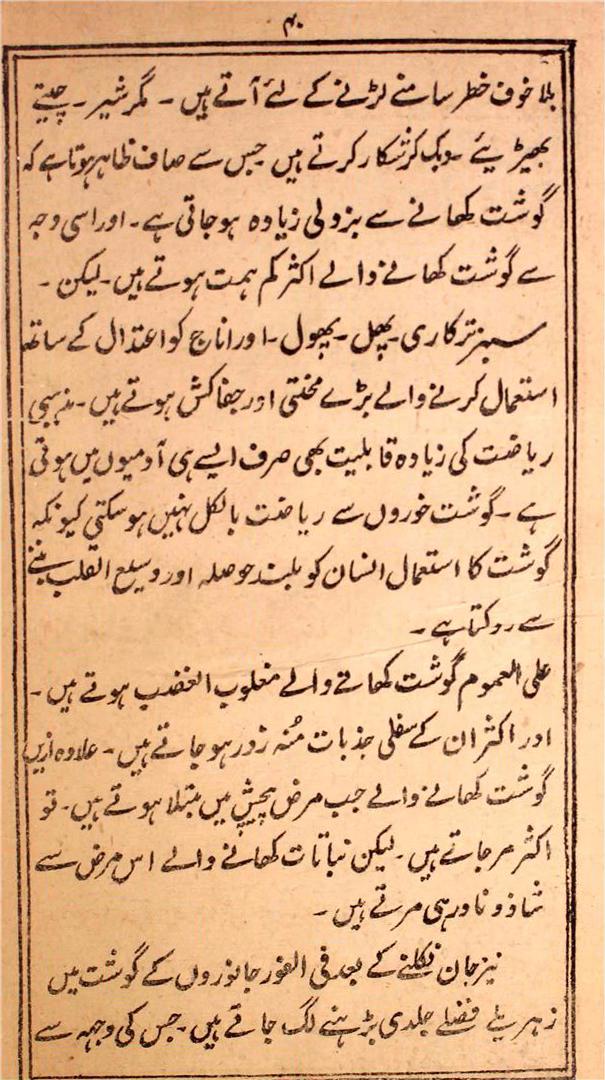 ۴۰
بلا خوف خطر سامنے لڑنے کے لئے آتے ہیں ۔ مگر شیر ۔ چیتے
بھیڑیئے ۔ دبک کر شکار کرتے ہیں جس سے صاف ظاہر ہوتا ہے کہ
گوشت کھانے سے بزدلی زیادہ ہو جاتی ہے ۔ اور اسی وجہ
سے گوشت کھانے والے اکثر کم ہمت ہوتے ہیں ۔ لیکن ۔
سبز ترکاری ۔ پھل ۔ پھول ۔ اور اناج کو اعتدال کے ساتھ
استعمال کرنے والے بڑے محنتی اور جفاکش ہوتے ہیں ۔ مذہبی
ریاضت کی زیادہ قابلیت بھی صرف ایسے ہی آدمیوں میں ہوتی
ہے ۔ گوشت خوروں سے ریاضت بالکل نہیں ہو سکتی کیونکہ
گوشت کا استعمال انسان کو بلند حوصلہ اور وسیع القلب بننے
سے روکتا ہے ۔
علی العموم گوشت کھانے والے مغلوب الغضب ہوتے ہیں ۔
اور اکثر ان کے سفلی جذبات مُنہ زور ہو جاتے ہیں ۔ علاوہ ازیں
گوشت کھانے والے جب مرض پیچش میں مبتلا ہوتے ہیں ۔ تو
اکثر مر جاتے ہیں ۔ لیکن نباتات کھانے والے اس مرض سے
شاذ و نادر ہی مرتے ہیں ۔
نیز جان نکلنے کے بعد فی الفور جانوروں کے گوشت میں
زہریلے فضلے جلدی بڑہنے لگ جاتے ہیں ۔ جس کی وجہہ سے